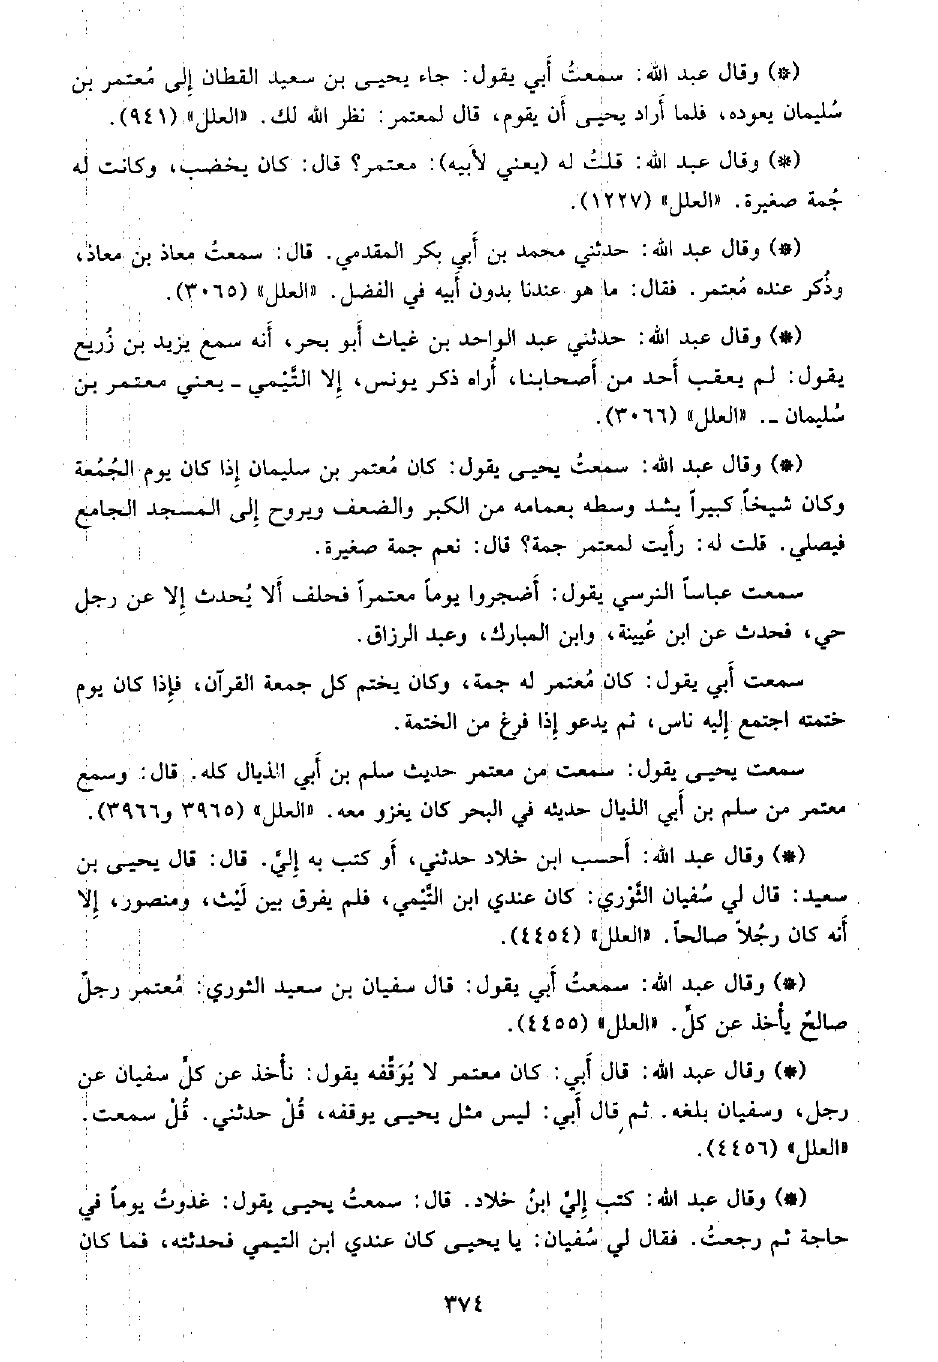 (*) وقال عبد الله: سمعتُ أَبي يقول: جاء يحيى بن سعيد القطان إِلى مُعتمر بن
سُليمان يعوده، فلما أَراد يحيى أَن يقوم، قال لمعتمر: نظر الله لك. «العلل» (٩٤١).
(*) وقال عبد الله: قلتُ له (يعني لأَبيه): معتمر؟ قال: كان يخضب، وكانت له
جُمة صغيرة. «العلل» (١٢٢٧).
(*) وقال عبد الله: حدثني محمد بن أَبي بكر المقدمي. قال: سمعتُ معاذ بن معاذ،
وذُكر عنده مُعتمر. فقال: ما هو عندنا بدون أَبيه في الفضل. «العلل» (٣٠٦٥).
(*) وقال عبد الله: حدثني عبد الواحد بن غياث أَبو بحر، أَنه سمع يزيد بن زُريع
يقول: لم يعقب أَحد من أَصحابنا، أُراه ذكر يونس، إِلا التَّيْمي ـ يعني معتمر بن
سُليمان ـ. «العلل» (٣٠٦٦).
(*) وقال عبد الله: سمعتُ يحيى يقول: كان مُعتمر بن سليمان إِذا كان يوم الجُمُعة
وكان شيخاً كبيراً يشد وسطه بعمامه من الكبر والضعف ويروح إِلى المسجد الجامع
فيصلي. قلت له: رأَيت لمعتمر جمة؟ قال: نعم جمة صغيرة.
سمعت عباساً النرسي يقول: أَضجروا يوماً معتمراً فحلف أَلا يُحدث إِلا عن رجل
حي، فحدث عن ابن عُيينة، وابن المبارك، وعبد الرزاق.
سمعت أَبي يقول: كان مُعتمر له جمة، وكان يختم كل جمعة القرآن، فإِذا كان يوم
ختمته اجتمع إِليه ناس، ثم يدعو إِذا فرغ من الختمة.
سمعت يحيى يقول: سمعت من معتمر حديث سلم بن أَبي الذيال كله. قال: وسمع
معتمر من سلم بن أَبي الذيال حديثه في البحر كان يغزو معه. «العلل» (٣٩٦٥ و٣٩٦٦).
(*) وقال عبد الله: أَحسب ابن خلاد حدثني، أَو كتب به إِليَّ. قال: قال يحيى بن
سعيد: قال لي سُفيان الثَّوْري: كان عندي ابن التَّيْمي، فلم يفرق بين لَيْث، ومنصور، إِلا
أَنه كان رجُلاً صالحاً. «العلل» (٤٤٥٤).
(*) وقال عبد الله: سمعتُ أَبي يقول: قال سفيان بن سعيد الثوري: مُعتمر رجلٌ
صالحٌ يأْخذ عن كلٍّ. «العلل» (٤٤٥٥).
(*) وقال عبد الله: قال أَبي: كان معتمر لا يُوَقِّفه يقول: نأْخذ عن كلِّ سفيان عن
رجل، وسفيان بلغه. ثم قال أَبي: ليس مثل يحيى يوقفه، قُلْ حدثني. قُلْ سمعت.
«العلل» (٤٤٥٦).
(*) وقال عبد الله: كتب إِليَّ ابنُ خلاد. قال: سمعتُ يحيى يقول: غدوتُ يوماً في
حاجة ثم رجعتُ. فقال لي سُفيان: يا يحيى كان عندي ابن التيمي فحدثته، فما كان
٣٧٤